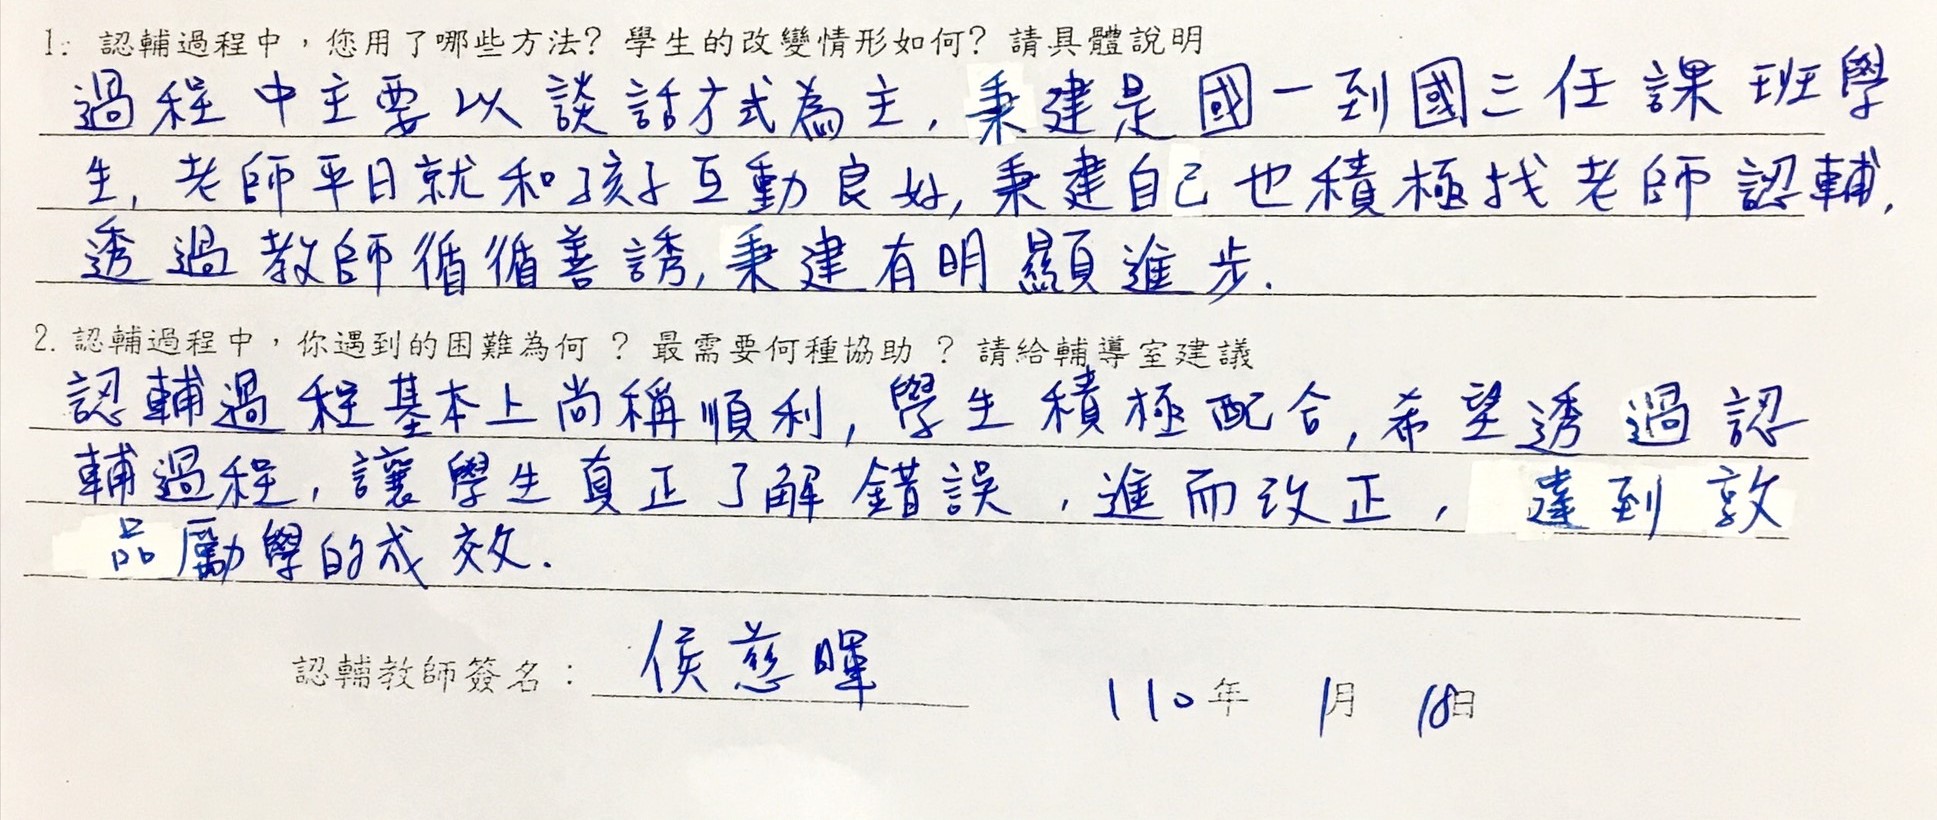 1. 認輔過程中，您用了哪些方法? 學生的改變情形如何? 請具體說明
過程中主要以談話方式為主, 秉建是國一到國三任課班學
生, 老師平日就和孩子互動良好, 秉建自己也積極找老師認輔,
透過教師循循善誘, 秉建有明顯進步.
2. 認輔過程中，你遇到的困難為何 ? 最需要何種協助 ? 請給輔導室建議
認輔過程基本上尚稱順利, 學生積極配合, 希望透過認
輔過程, 讓學生真正了解錯誤, 進而改正, 達到敦
品勵學的成效.
認輔教師簽名： 侯慈暉 110年 1月 18日